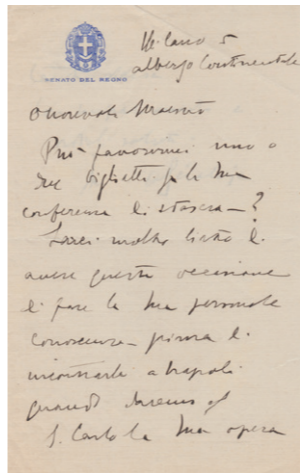 SENATO DEL REGNO
Milano 5
albergo Continentale
Onorevole Maestro
Può favorirmi uno o
due biglietti per la sua
conferenza di stasera?
Sarei molto lieto di
avere questa occasione
di fare la sua personale
conoscenza prima di
incontrarla a Napoli
quando daremo al
S. Carlo la sua opera